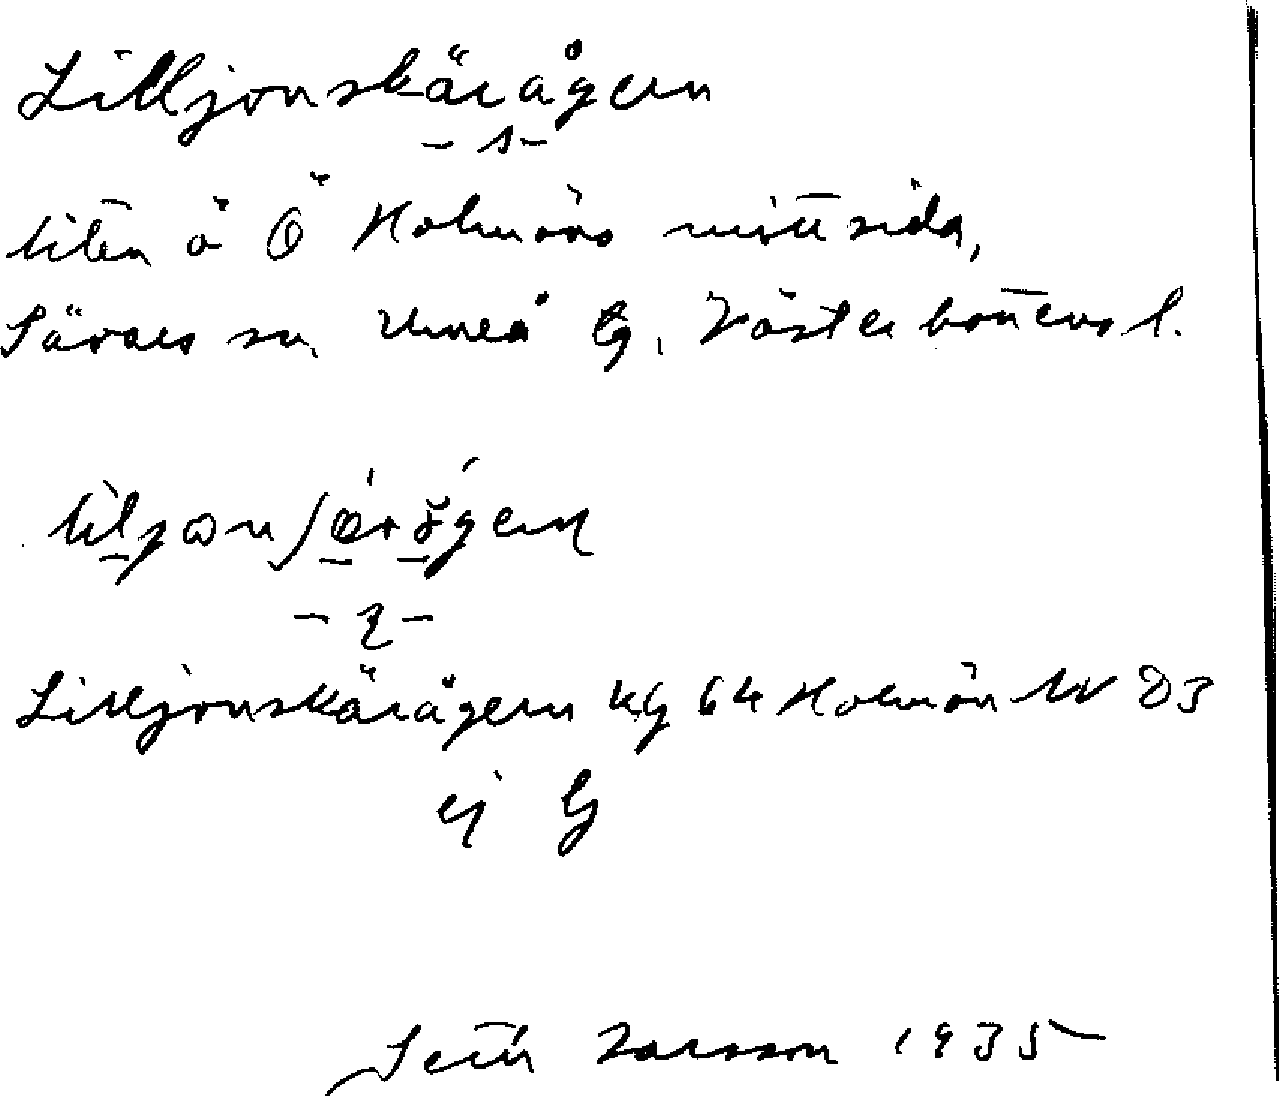 Lilljonskärågern
- 1 -
liten ö Ö Holmöns mitt sida,
Sävars sn, Umeå lg, Västerbottens l.
- 2 -
Lilljonskärågern kg 64 Holmön NV D3
ej lg
Setth Larsson 1935